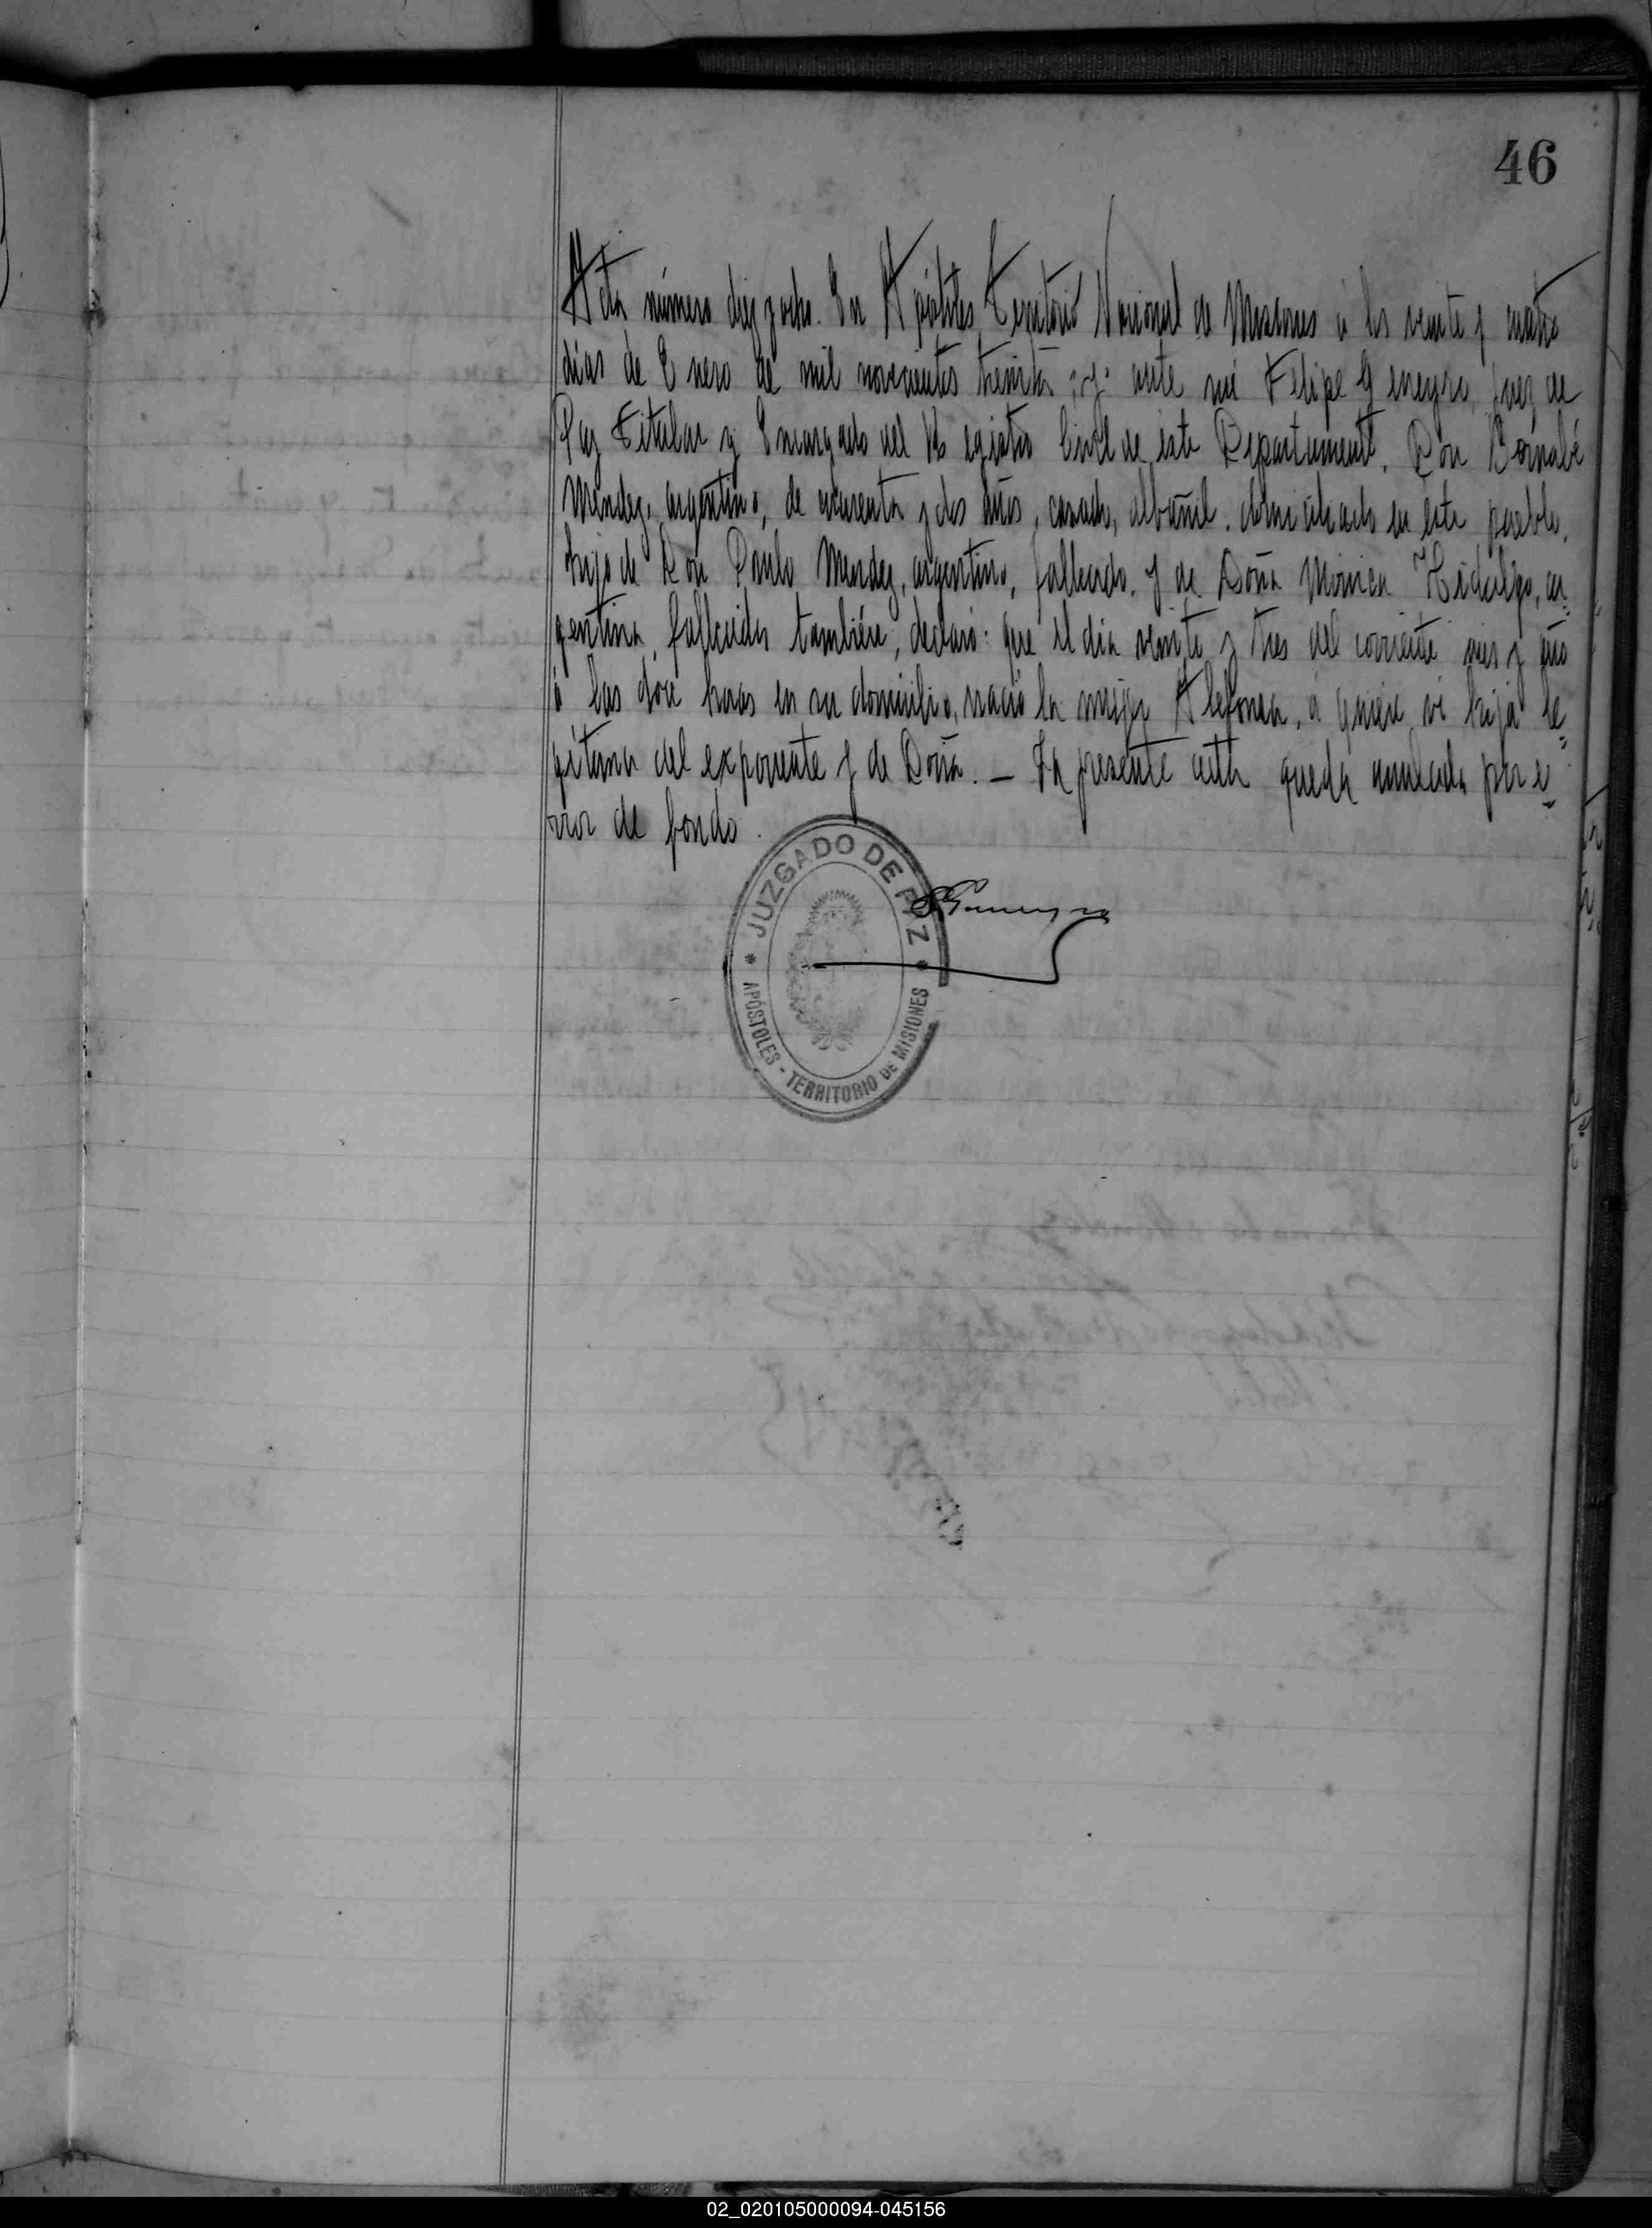 46
Acta número diez y ocho. En Apóstoles Territorio Nacional de Misiones á los veinte y cuatro
dias de Enero de mil novecientos treinta ante mi Felipe Geneyro, Juez de
Paz Titular y Encargado del Registro Civil de este Departamento, Don Bernabé
Mendez, argentino, de cuarenta y dos años, casado, albañil, domiciliado en este pueblo,
hijo de Don Paulo Mendez, argentino, fallecido, y de Doña Monica Hidalgo, ar-
gentina, fallecida también, declaró: que el dia veinte y tres del corriente mes y año
á las doce horas en su domicilio, nació la mujer Ildefonsa, á quien vi hija le-
gitima del exponente y de Doña. — La presente acta queda anulada por e-
rror de fondo.
JUZGADO DE PAZ
APÓSTOLES - TERRITORIO DE MISIONES
02_020105000094-045156